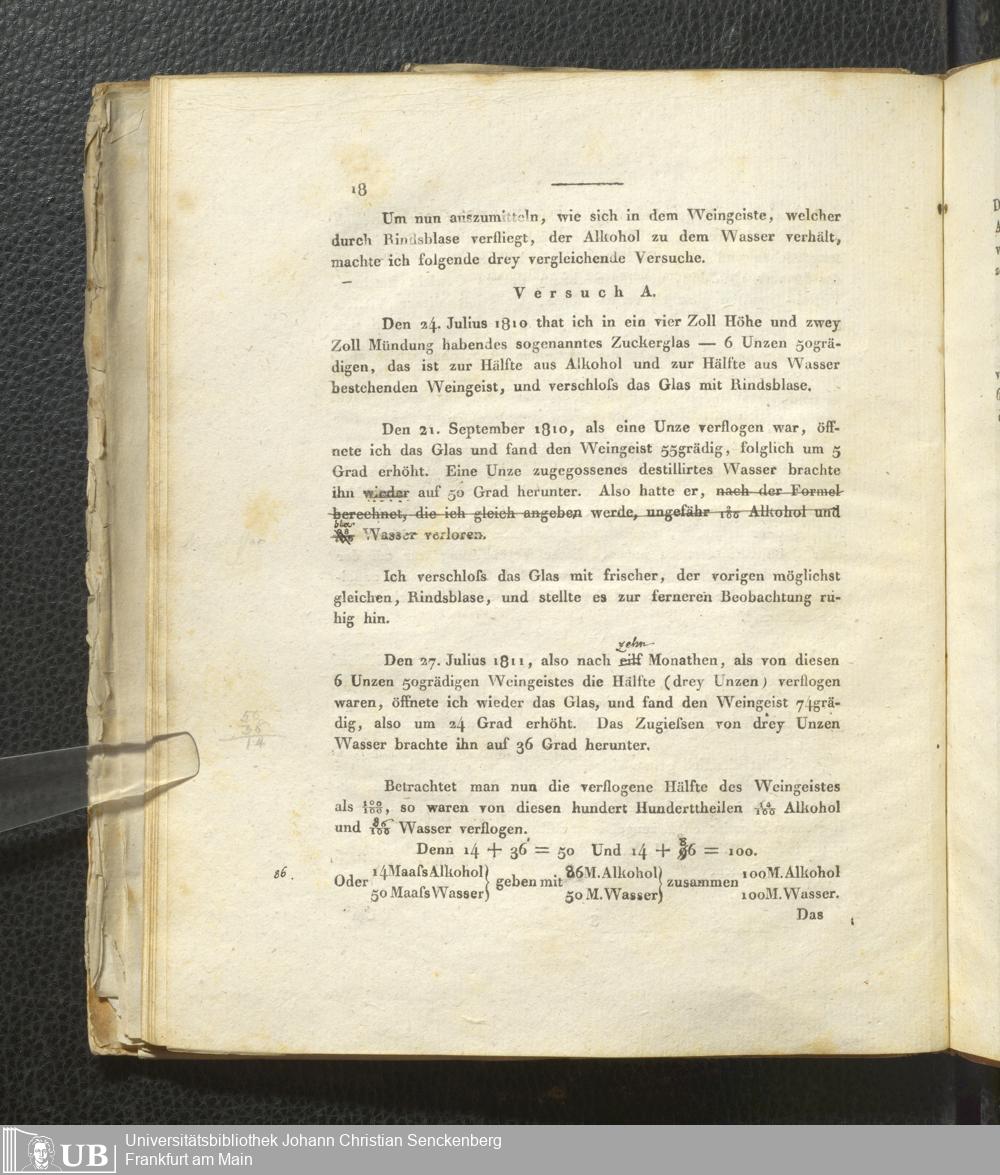 18
Um nun auszumitteln, wie sich in dem Weingeiste, welcher
durch Rindsblase verfliegt, der Alkohol zu dem Wasser verhält,
machte ich folgende drey vergleichende Versuche.
Versuch A.
Den 24. Julius 1810 that ich in ein vier Zoll Höhe und zwey
Zoll Mündung habendes sogenanntes Zuckerglas — 6 Unzen 50grä-
digen, das ist zur Hälfte aus Alkohol und zur Hälfte aus Wasser
bestehenden Weingeist, und verschloſs das Glas mit Rindsblase.
Den 21. September 1810, als eine Unze verflogen war, öff-
nete ich das Glas und fand den Weingeist 55grädig, folglich um 5
Grad erhöht. Eine Unze zugegossenes destillirtes Wasser brachte
ihn wieder auf 50 Grad herunter. Also hatte er, nach der Formel
berechnet, die ich gleich angeben werde, ungefähr Alkohol und
blos
Wasser verloren.
Ich verschloſs das Glas mit frischer, der vorigen möglichst
gleichen, Rindsblase, und stellte es zur ferneren Beobachtung ru-
hig hin.
zehn
Den 27. Julius 1811, also nach eilf Monathen, als von diesen
6 Unzen 50grädigen Weingeistes die Hälfte (drey Unzen) verflogen
waren, öffnete ich wieder das Glas, und fand den Weingeist 74grä-
dig, also um 24 Grad erhöht. Das Zugieſsen von drey Unzen
Wasser brachte ihn auf 36 Grad herunter.
50
36
14
Betrachtet man nun die verflogene Hälfte des Weingeistes
als 100/100, so waren von diesen hundert Hunderttheilen 14/100 Alkohol
und 86/100 Wasser verflogen.
Denn 14 + 36 = 50 Und 14 + 86 = 100.
86.
Oder 14 Maaſs Alkohol } geben mit 86 M. Alkohol } zusammen 100 M. Alkohol
50 Maaſs Wasser } 50 M. Wasser } 100 M. Wasser.
Das
UB
Universitätsbibliothek Johann Christian Senckenberg
Frankfurt am Main